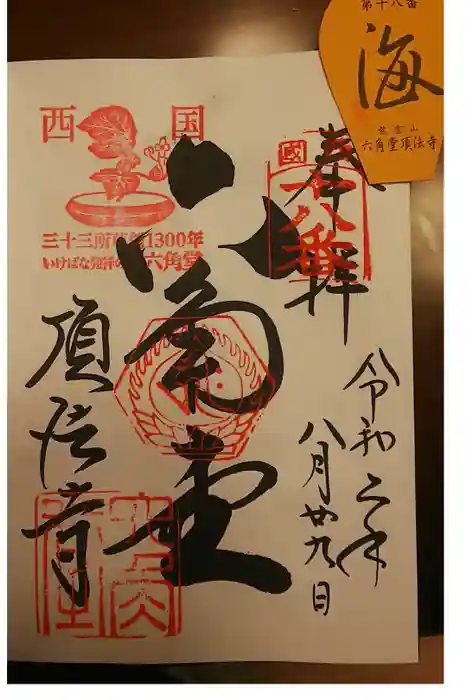 第十八番
海
紫雲山
六角堂頂法寺
奉拝
國
十八番
令和二年
八月廿九日
六角堂
西国
三十三所草創1300年
いけばな発祥の地 六角堂
頂法寺
六角堂